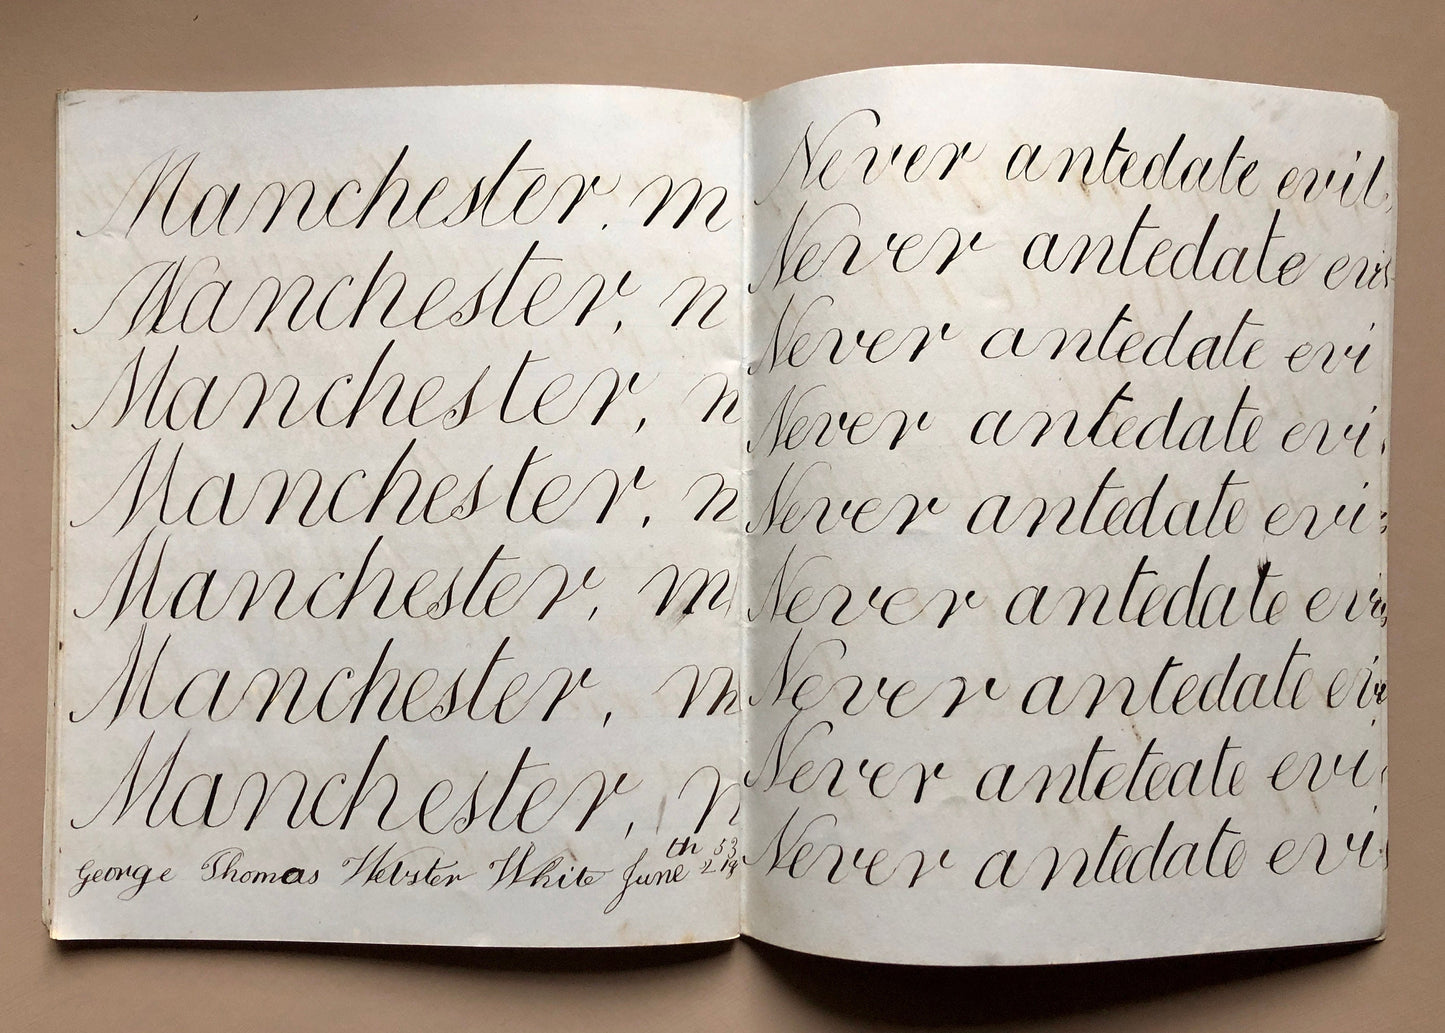 Manchester. m
Manchester, n
Manchester, n
Manchester, n
Manchester, m
Manchester, m
Manchester, n
George Thomas Webster White June th 53
Never antedate evil,
Never antedate evi
Never antedate evi
Never antedate evi
Never antedate evi
Never antedate evi
Never antedate evi
Never anteteate evi
Never antedate evi